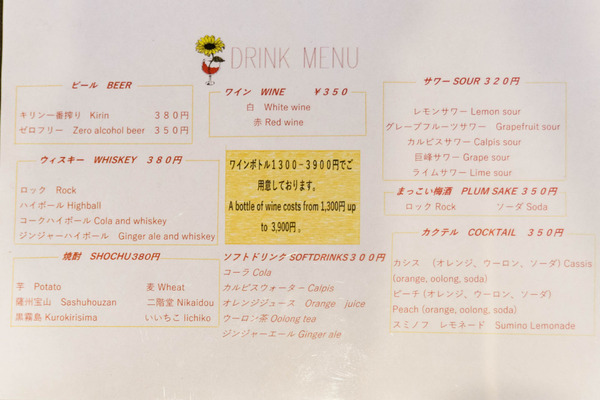 DRINK MENU
ビール BEER
キリン一番搾り Kirin ３８０円
ゼロフリー Zero alcohol beer ３５０円
ワイン WINE ￥３５０
白 White wine
赤 Red wine
サワー SOUR ３２０円
レモンサワー Lemon sour
グレープフルーツサワー Grapefruit sour
カルピスサワー Calpis sour
巨峰サワー Grape sour
ライムサワー Lime sour
ウィスキー WHISKEY ３８０円
ロック Rock
ハイボール Highball
コークハイボール Cola and whiskey
ジンジャーハイボール Ginger ale and whiskey
ワインボトル１３００－３９００円でご
用意しております。
A bottle of wine costs from 1,300円 up
to 3,900円 。
まっこい梅酒 PLUM SAKE ３５０円
ロック Rock ソーダ Soda
焼酎 SHOCHU３８０円
芋 Potato 麦 Wheat
薩州宝山 Sashuhouzan 二階堂 Nikaidou
黒霧島 Kurokirisima いいちこ Iichiko
ソフトドリンク SOFTDRINKS３００円
コーラ Cola
カルピスウォーター－Calpis
オレンジジュース Orange juice
ウーロン茶 Oolong tea
ジンジャーエール Ginger ale
カクテル COCKTAIL ３５０円
カシス （オレンジ、ウーロン、ソーダ) Cassis
(orange, oolong, soda）
ピーチ (オレンジ、ウーロン、ソーダ）
Peach (orange, oolong, soda)
スミノフ レモネード Sumino Lemonade